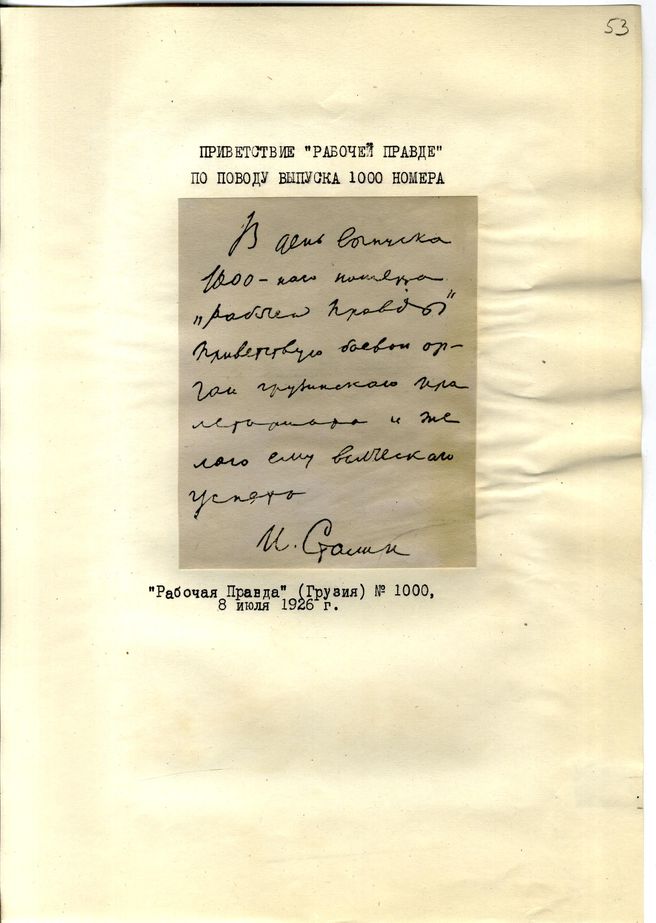 53
ПРИВЕТСТВИЕ "РАБОЧЕЙ ПРАВДЕ"
ПО ПОВОДУ ВЫПУСКА 1000 НОМЕРА
В день выпуска
1000-ного номера
„Рабочей Правды"
приветствую боевой ор-
ган грузинского про
летариата и же
лаю ему всяческого
успеха
И. Сталин
"Рабочая Правда" (Грузия) № 1000,
8 июля 1926 г.